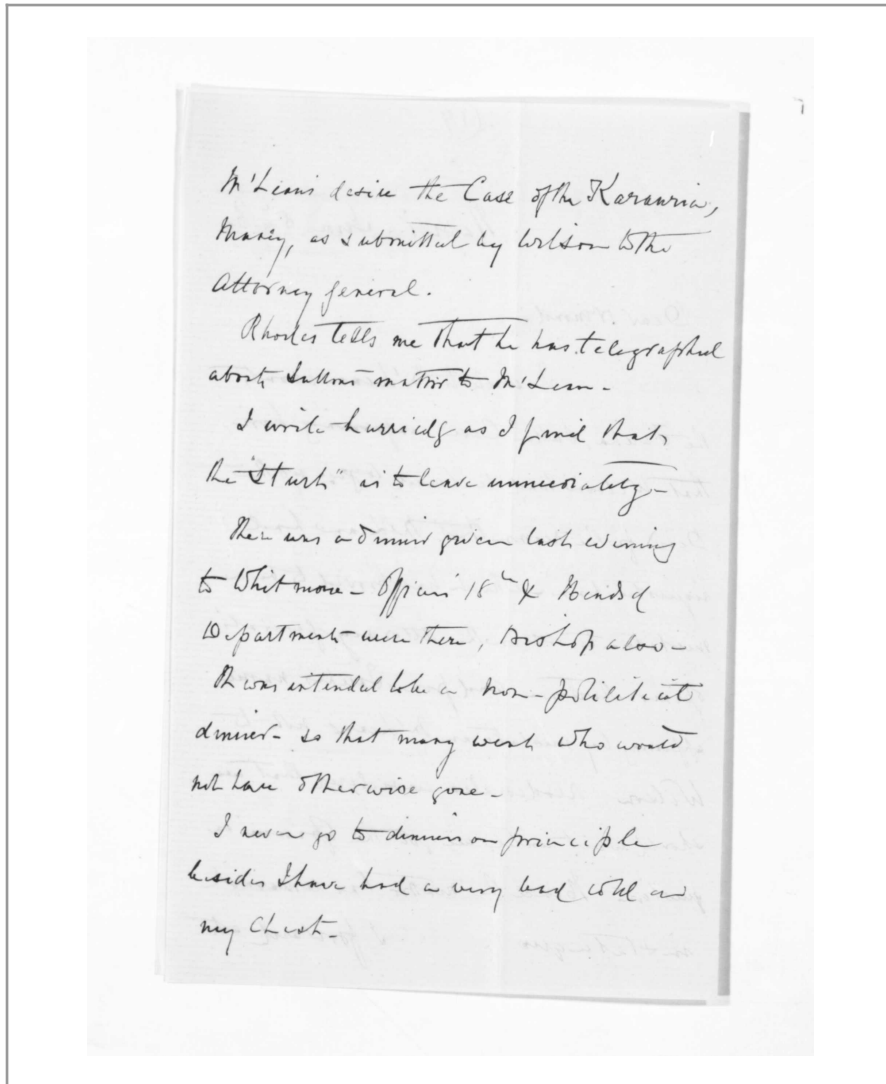 McLean's desire the Case of the Karauria,
Money, as submitted by Wilson to the
Attorney General.
Rhodes tells me that he has telegraphed
about Suttons matter to McLean -
I write hurriedly as I find that
the "Sturt" is to leave immediately -
There was a dinner given last evening
to Whitmore - Officers 18th & Heads of
Departments were there, Bishop also -
It was intended to be a non-political
dinner - so that many went who would
not have otherwise gone -
I never go to dinners on principle
besides I have had a very bad cold on
my Chest -